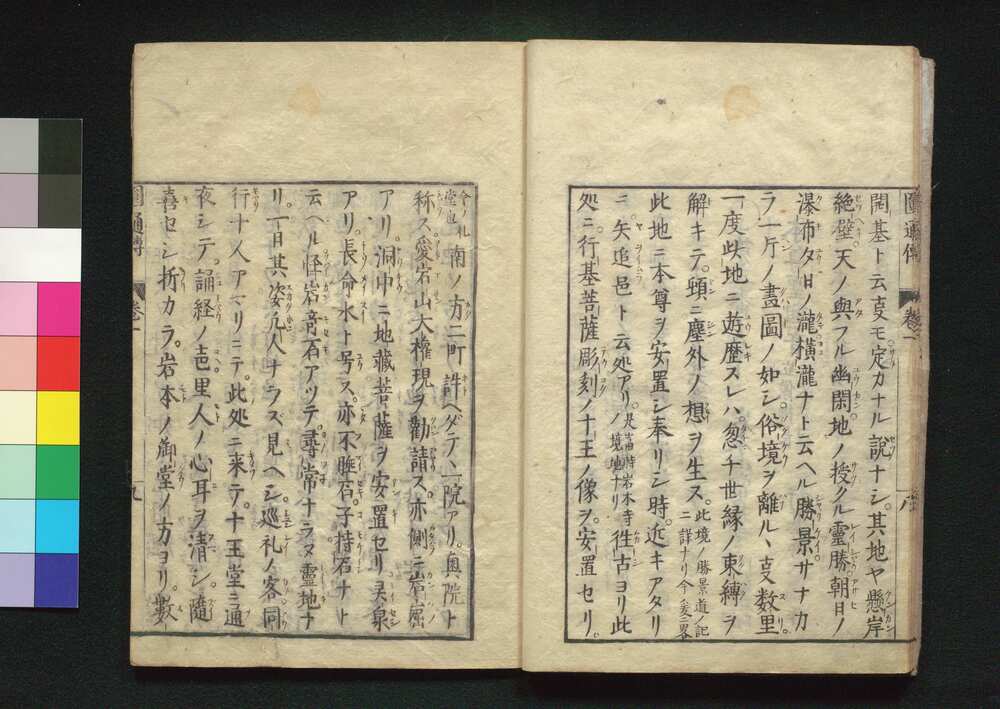 開基ト云叓モ定カナル説ナシ。其地ヤ懸岸
絶壁天ノ與フル幽閑地ノ授クル靈勝朝日ノ
瀑布夕日ノ瀧橫瀧ナト云ヘル勝景サナカ
ラ一片ノ畫圖ノ如シ。俗境ヲ離ルヽ叓数里
一度此地ニ遊歷スレハ忽チ世縁ノ束縛ヲ
解キテ。頭ニ塵外ノ想ヲ生ス。此境ノ勝景道ノ記ニ詳ナリ今爰ニ畧
此地ニ本尊ヲ安置シ奉リシ時。近キアタリ
ニ矢追邑ト云処アリ。是當時岩本寺ノ境地ナリ徃古ヨリ此
処ニ行基菩薩彫刻ノ十王ノ像ヲ。安置セリ。
圓通傳 卷一 八
今ノ札堂也南ノ方二町許ヘダテヽ一院アリ。奥院ト
称ス愛宕山大權現ヲ勸請ス。亦側ニ岩窟
アリ。洞中ニ地藏菩薩ヲ安置セリ灵泉
アリ。長命水ト号ス。亦不雎石。子持石ナト
云ヘル怪岩竒石アツテ。尋常ナラヌ靈地ナ
リ。一日其姿凢人ナラズ見ヘシ。巡礼ノ客同
行十人アマリニテ。此処ニ来テ。十王堂ニ通
夜シテ。誦経ノ声里人ノ心耳ヲ清シ。隨
喜セシ折カラ。岩本ノ御堂ノ方ヨリ。數
圓通傳 卷一 九